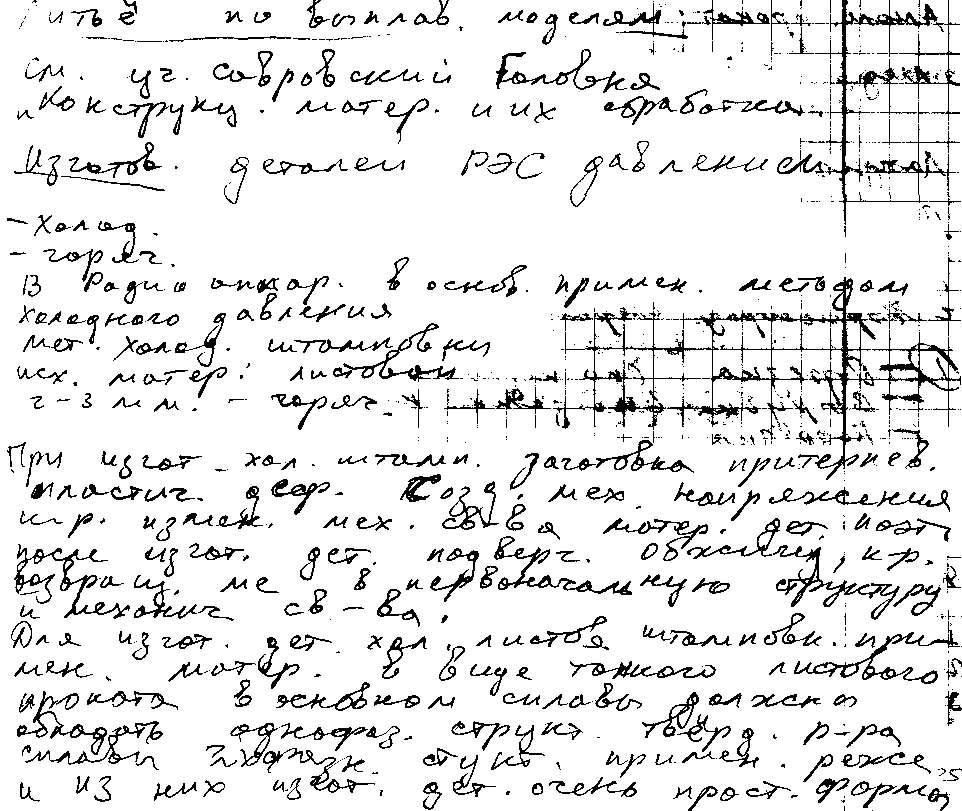 Литьё по выплав. моделям:
См. уч. Савровский Головня
"Конструкц. матер. и их обработка"
Изготов. деталей РЭС давлением
- холод.
- горяч.
В Радиоаппар. в основ. примен. методом
холодного давления
мет. холод. штамповки
исх. матер: листовой
2-3 мм. - горяч.
При изгот хол. штамп. заготовка притерпев.
пластич. деф. Созд. мех напряжения
к-р. измен. мех. св-ва матер. дет. поэт.
после изгот. дет. подверг. обжигу, к-р.
возвращ. ме в первоначальную структуру
и механич св-ва.
Для изгот. дет хол. листов штамповк. при-
мен. матер. в виде тонкого листового
проката в основном сплавы должны
обладать однофаз. структ. твёрд. р-ра
сплавы 2хфазн стукт. примен. реже
и из них изгот. дет. очень прост. формы